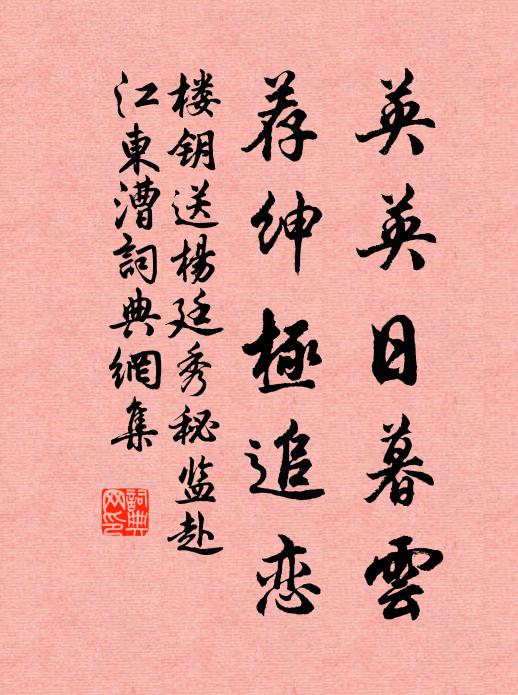 英英日暮雲
荐绅極追恋
楼钥送楊廷秀秘监赴
江東漕詞典網集
詞典网印